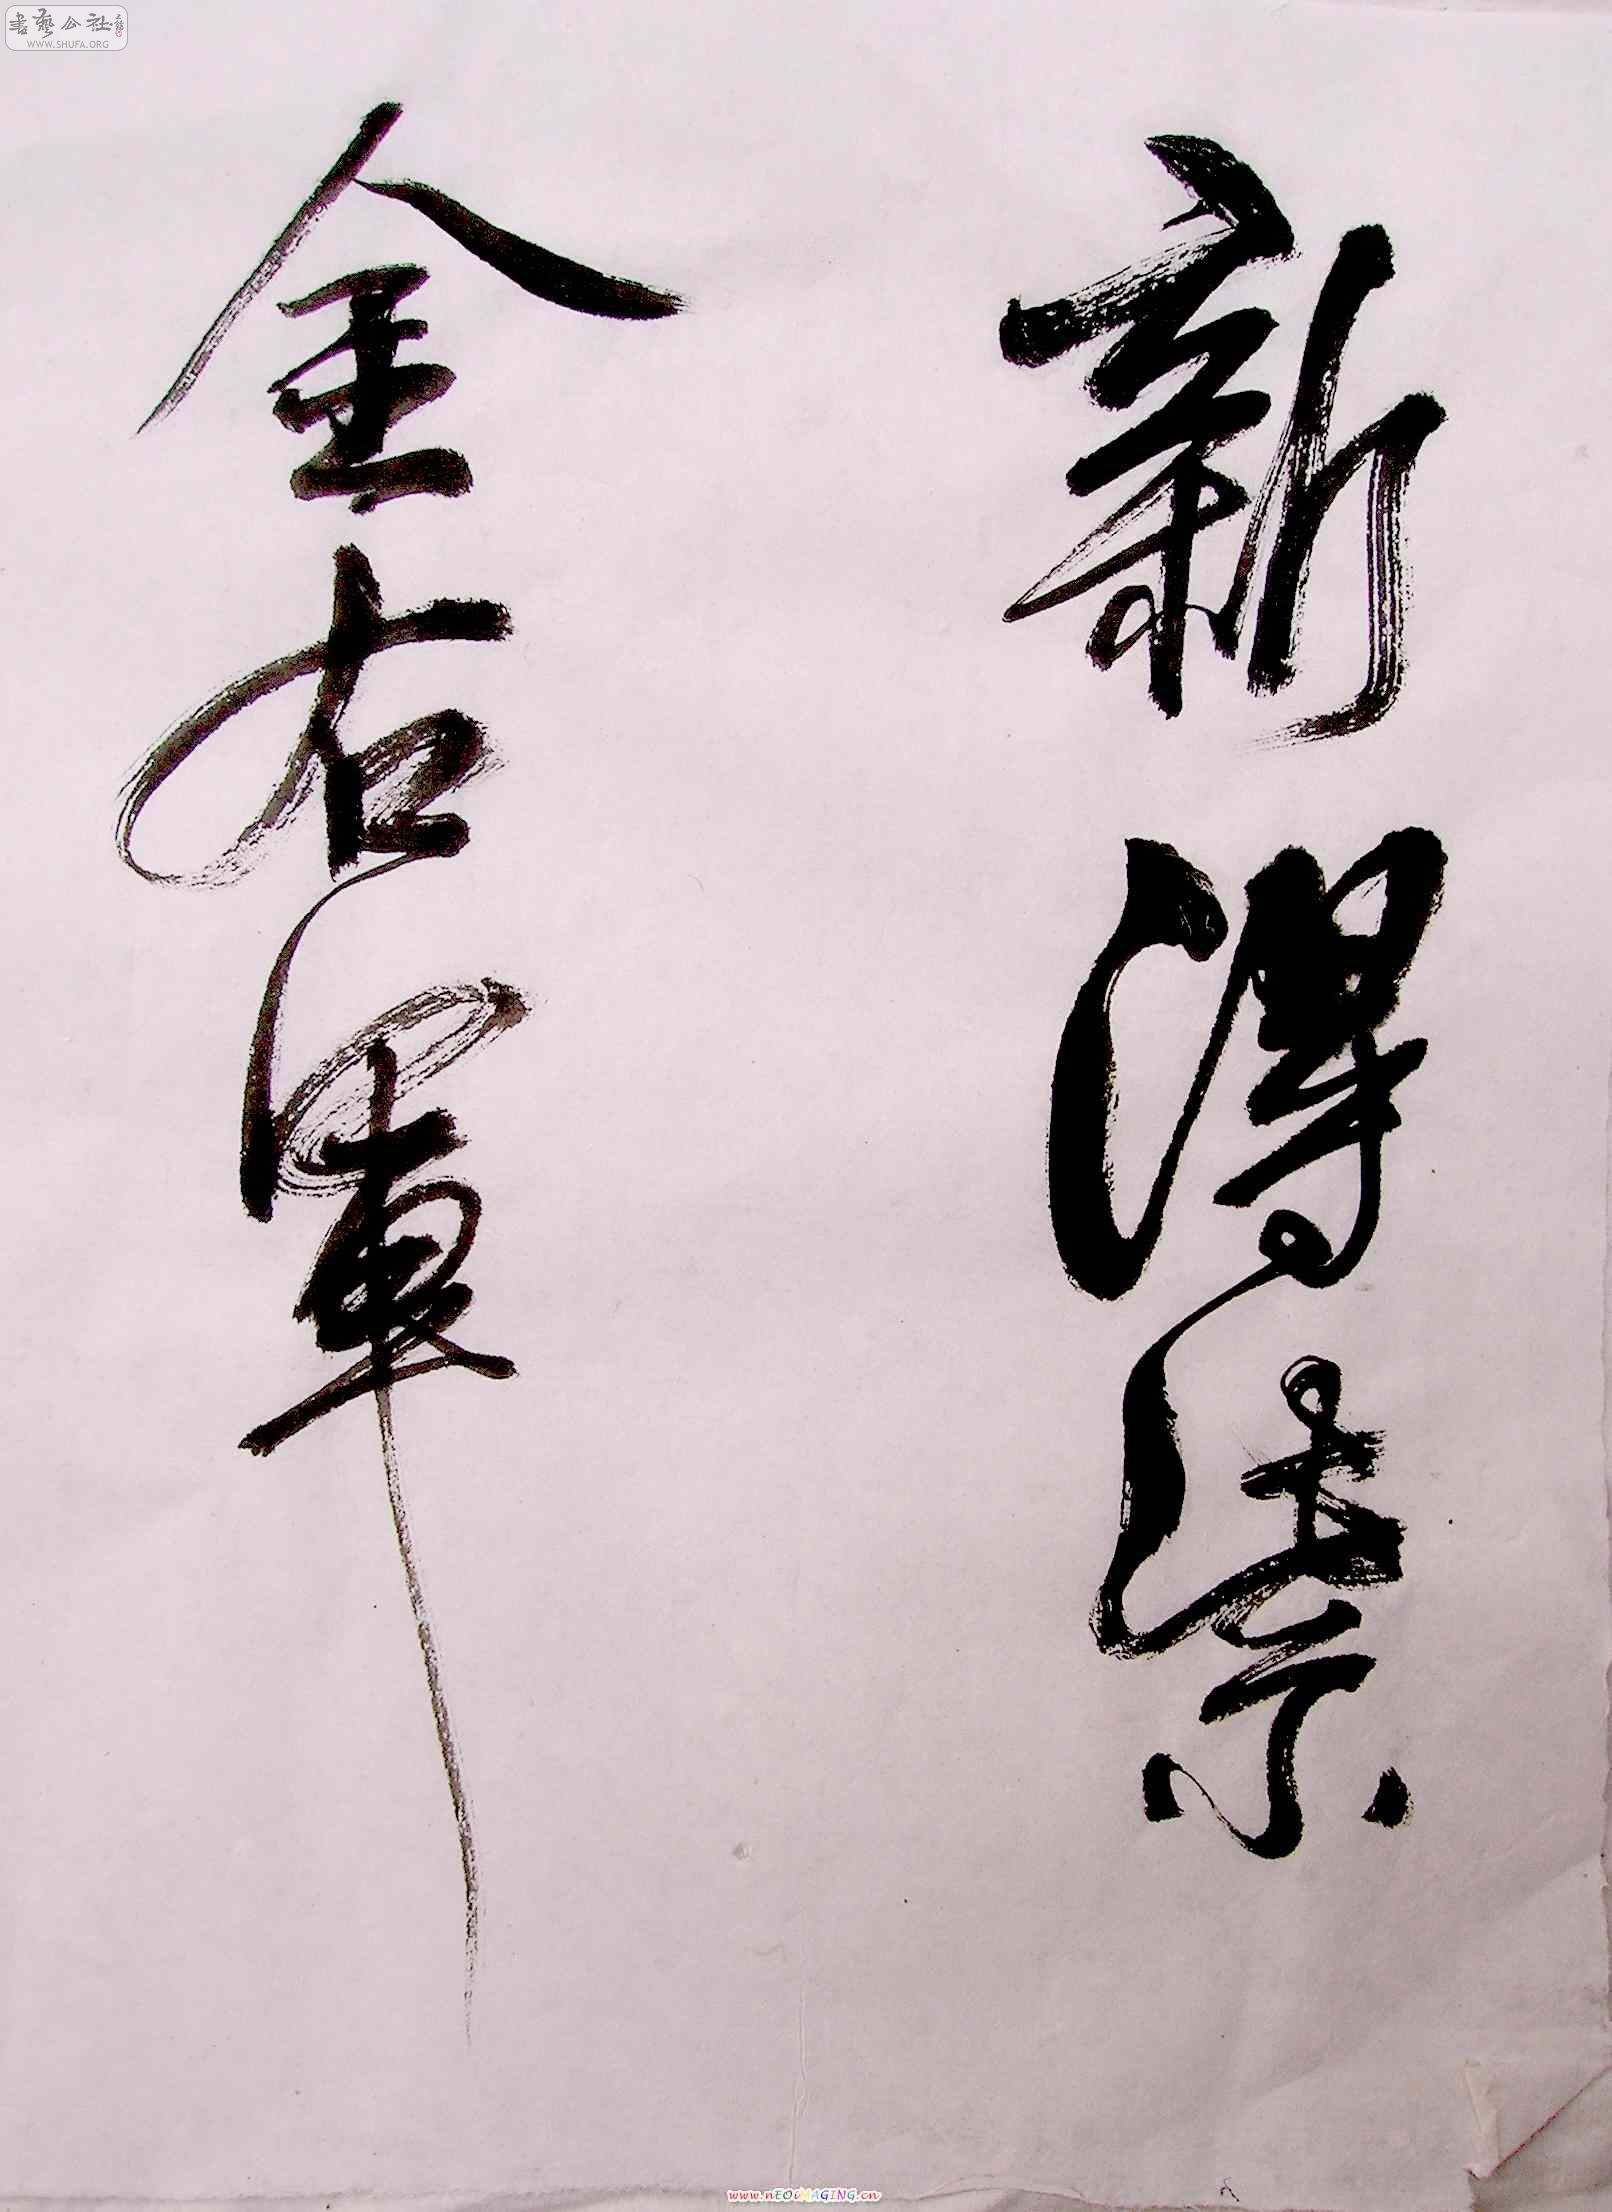 書藝公社
WWW.SHUFA.ORG
新得紫
金右軍
www.nEOiMAGING.cn